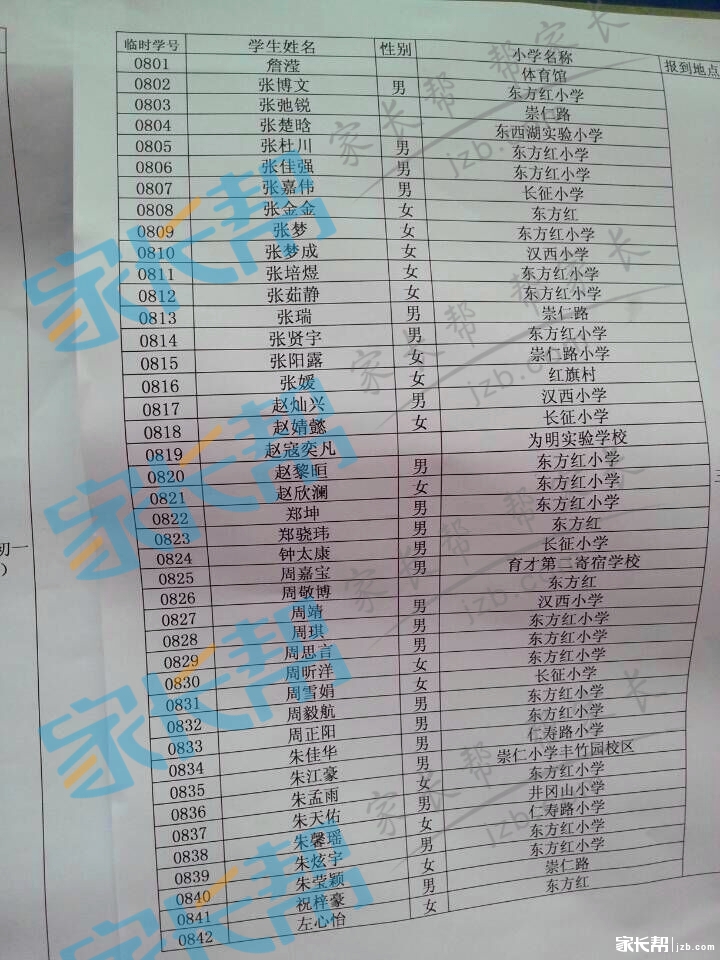 临时学号 学生姓名 性别 小学名称 报到地点
0801 詹滢 体育馆
0802 张博文 男 东方红小学
0803 张弛锐 崇仁路
0804 张楚晗 东西湖实验小学
0805 张杜川 男 东方红小学
0806 张佳强 男 东方红小学
0807 张嘉伟 男 长征小学
0808 张金金 女 东方红
0809 张梦 女 东方红小学
0810 张梦成 女 汉西小学
0811 张培煜 女 东方红小学
0812 张茹静 女 东方红小学
0813 张瑞 男 崇仁路
0814 张贤宇 男 东方红小学
0815 张阳露 女 崇仁路小学
0816 张媛 女 红旗村
0817 赵灿兴 男 汉西小学
0818 赵婧懿 女 长征小学
0819 赵寇奕凡 为明实验学校
0820 赵黎晅 男 东方红小学
0821 赵欣澜 女 东方红小学
0822 郑坤 男 东方红小学
0823 郑骁玮 男 东方红
0824 钟太康 男 长征小学
0825 周嘉宝 男 育才第二寄宿学校
0826 周敬博 东方红
0827 周靖 男 汉西小学
0828 周琪 男 东方红小学
0829 周思言 男 东方红小学
0830 周昕洋 女 东方红小学
0831 周雪娟 女 长征小学
0832 周毅航 男 东方红小学
0833 周正阳 男 东方红小学
0834 朱佳华 男 仁寿路小学
0835 朱江豪 男 崇仁小学丰竹园校区
0836 朱孟雨 女 东方红小学
0837 朱天佑 男 井冈山小学
0838 朱馨瑶 女 仁寿路小学
0839 朱炫宇 男 东方红小学
0840 朱莹颖 女 东方红小学
0841 祝梓豪 男 崇仁路
0842 左心怡 女 东方红
初一
)
家长帮
家长帮
家长帮
家长帮 家长帮 家长
jzb.com
家长帮 家长帮 家长
jzb.com
家长帮 家长帮 家长
jzb.com
家长帮 家长帮 家长
jzb.com
家长帮 jzb.com